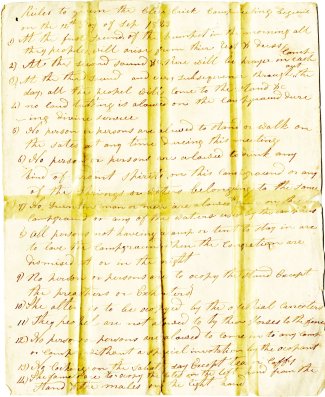 Rules to govern the Camp meeting Begins
on the 12th day of Sep 18
1) At the first sound of the trumpet in the morning all
the people will arise from their rest & dress
2) At the second sound there will be prayer in each Camp
3) At the third sound and our subsequence through the
day all the people will come to the stand &c
4) no loud talking is alowed on the Campground dure
ing divine service
5) No person or persons are alowed to stand or walk on
the seats at any time dureing this meeting
6) No person or persons are alowed to vend any
kind of ardent spirits on this Campground or any
of the springs or waters belonging to the same
7) No man or men are alowed on the
Campground or any of the waters
8) All persons not having a camp or tent to stay in are
to leave the Campground when the congregation are
dismissed or in the night
9) No person or persons are to ocupy the stand Except
the preachers or Exhorters
10) The alter is to be occupied by the
11) The people are not alowed to ty their Horses to the
12) No person or persons are alowed to come in to any camp
or tent without a special invitation by the occupant
13) No cooking on the Sabath day Except tea or Coffee
14) The females are to ocupy the seats on the left hand from the
Stand & the males on the right hand